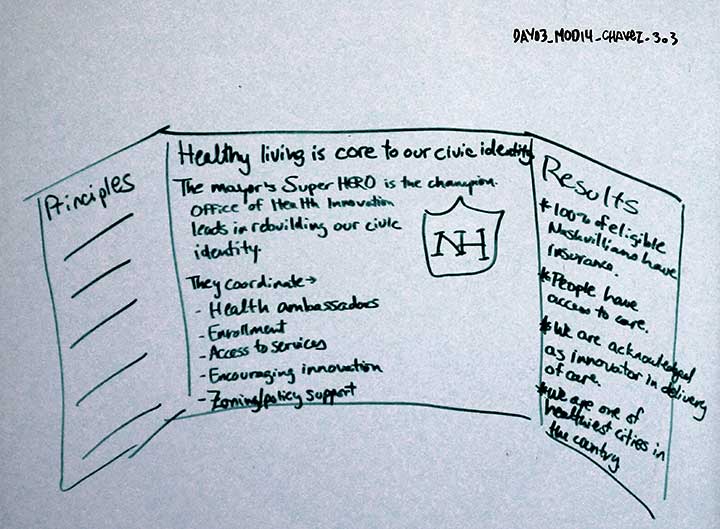 DAY03_MOD14_CHAVEZ_3.3
Principles
Healthy living is core to our civic identity
The mayor's Super HERO is the champion.
Office of Health Innovation
leads in rebuilding our civic
identity.
NH
They coordinate→
- Health ambassadors
- Enrollment
- Access to services
- Encouraging innovation
- Zoning/policy support
Results
* 100% of eligible
Nashvillians have
insurance.
* People have
access to care.
* We are acknowledged
as innovator in delivery
of care.
* We are one of
healthiest cities in
the country